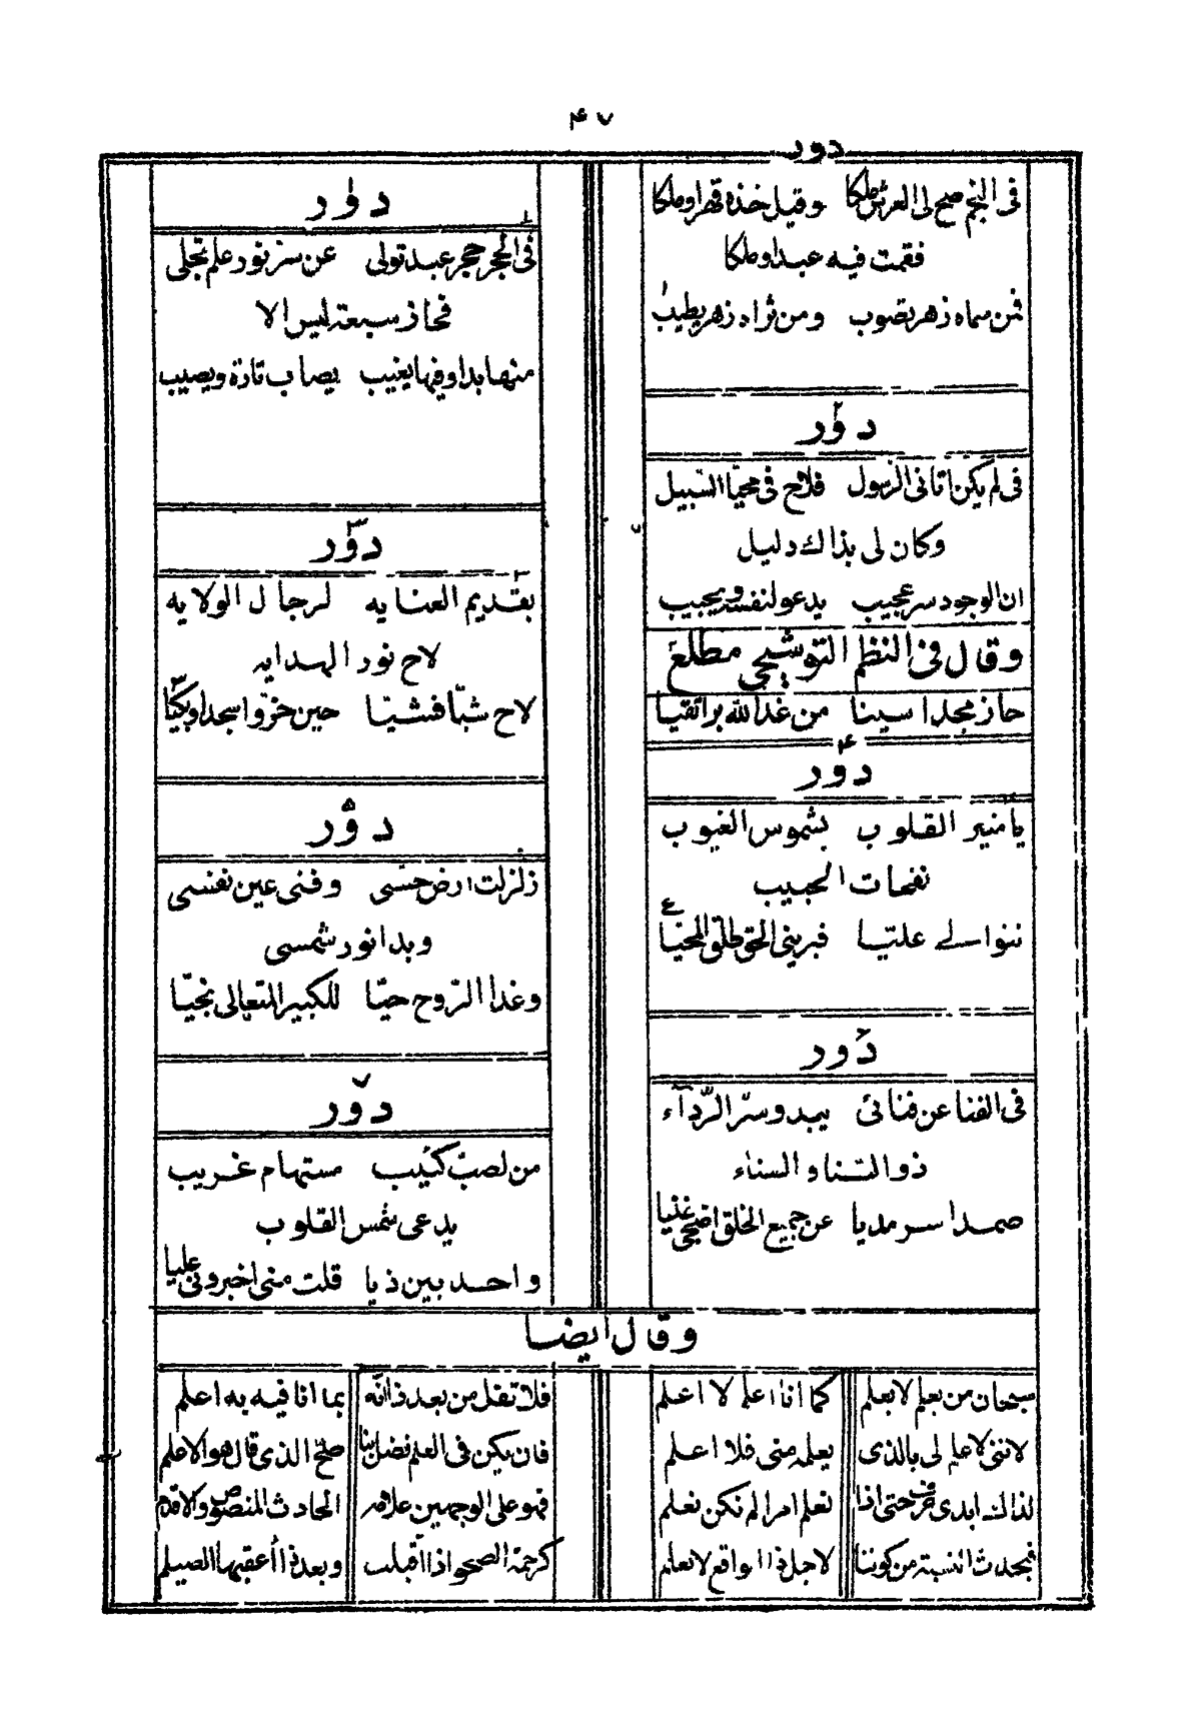 ٤٧
دور
فى النجم صح لى العرش ملكا وقيل خذه قهرا وملكا
فقمت فيه عبدا وملكا
فمن سماه زهر يصوب ومن ثراه زهر يطيب
دور
فى لم يكن اتانى الرسول فلاح فى محيّا السبيل
وكان لى بذاك دليل
ان الوجود سر عجيب يدعو لنفسه ويجيب
وقال فى النظم التوشيحى مطلع
حاز مجدا سينا من غدا لله برا تقيا
دور
يا منير القلوب بشموس الغيوب
نفحات الحبيب
تتوالى عليّا فيرينى الحق طلق المحيّا
دور
فى الفنا عن فنائى يبدو سرّ الرّدآء
ذو الثنا والسناء
صمدا سرمديا عن جميع الخلق اضحى غنيا
دور
فى الحجر حجر عبد تولى عن سر نور علم تجلى
فحاز سبعة ليس الا
منها بدا وفيها يغيب يصاب تارة ويصيب
دور
بقديم العنايه لرجال الولايه
لاح نور الهدايه
لاح شيّا فشيّا حين خرّوا سجدا وبكيّا
دور
زلزلت ارض حسّى وفنى عين نفسى
وبدا نور شمسى
وغدا الرّوح حيّا للكبير المتعالى نجيّا
دور
من لصبّ كئيب مستهام غريب
يدعى شمس القلوب
واحد بين ذيا قلت منى اخبرونى عليا
وقال ايضا
سبحان من يعلم لا يعلم كما انا اعلم لا اعلم
لاننى لا علم لى بالذى يعلمه منى فلا اعلم
لذا له ابدى حرف حتى اذا نعلم امرا لم نكن نعلم
فيحدث النسبة من كوننا لاجل ذا الواقع لا نعلم
فلا تقل من بعد ذا انّه بما انا فيه به اعلم
فان يكن فى العلم فضل بنا صحّ الذى قال هو الاعلم
فهو على الوجهين علامه الحادث المنصوص والاقدم
كرحمة الصحو اذا اقبلت وبعد ذا اعقبها الصيلم